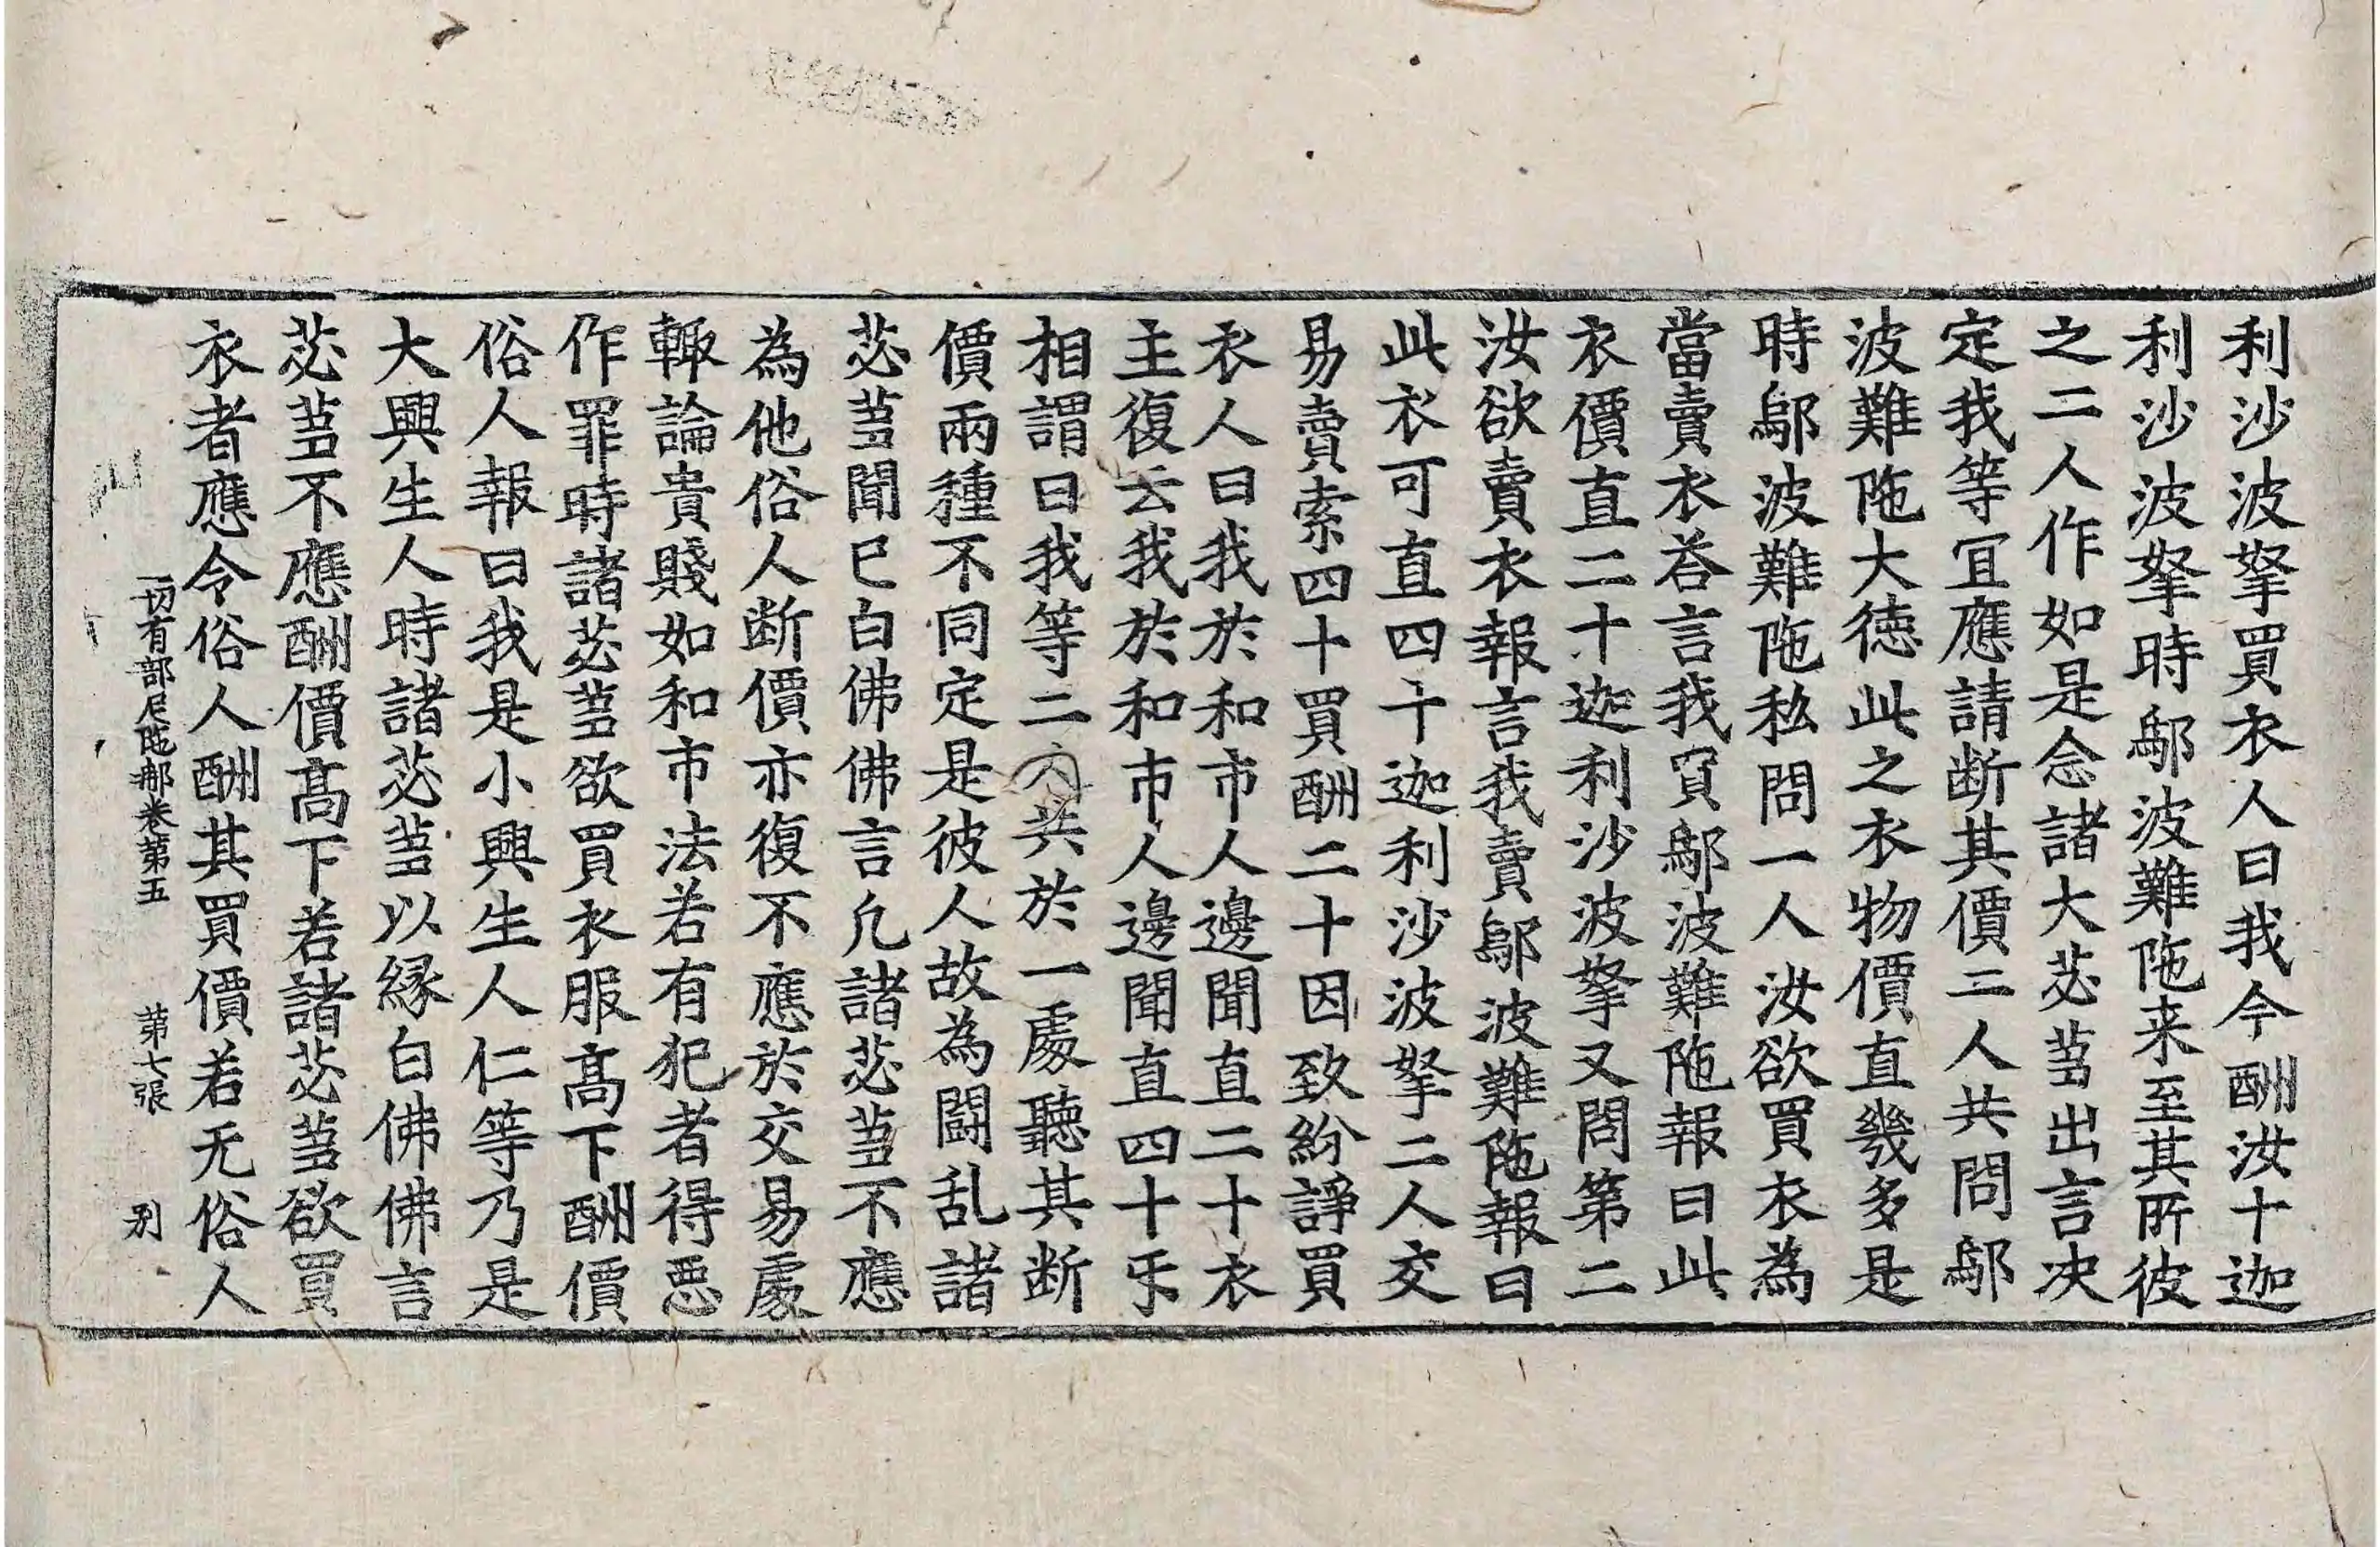 利沙波拏買衣人曰我今酬汝十迦
利沙波拏時鄔波難陁来至其所彼
之二人作如是念諸大苾蒭出言決
定我等冝應請断其價二人共問鄔
波難陁大徳此之衣物價直幾多是
時鄔波難陁私問一人汝欲買衣為
當賣衣荅言我買鄔波難陁報曰此
衣價直二十迦利沙波拏又問第二
汝欲賣衣報言我賣鄔波難陁報曰
此衣可直四十迦利沙波拏二人交
易賣索四十買酬二十因致紛諍買
衣人曰我於和市人邊聞直二十衣
主復云我於和市人邊聞直四十乎
相謂曰我等二人共於一處聽其断
價兩種不同定是彼人故為闘乱諸
苾蒭聞已白佛佛言凢諸苾蒭不應
為他俗人断價亦復不應於交易處
輙論貴賤如和市法若有犯者得惡
作罪時諸苾蒭欲買衣服髙下酬價
俗人報曰我是小興生人仁等乃是
大興生人時諸苾蒭以縁白佛佛言
苾蒭不應酬價髙下若諸苾蒭欲買
衣者應令俗人酬其買價若无俗人
一切有部尼陁那卷第五 第七張 别